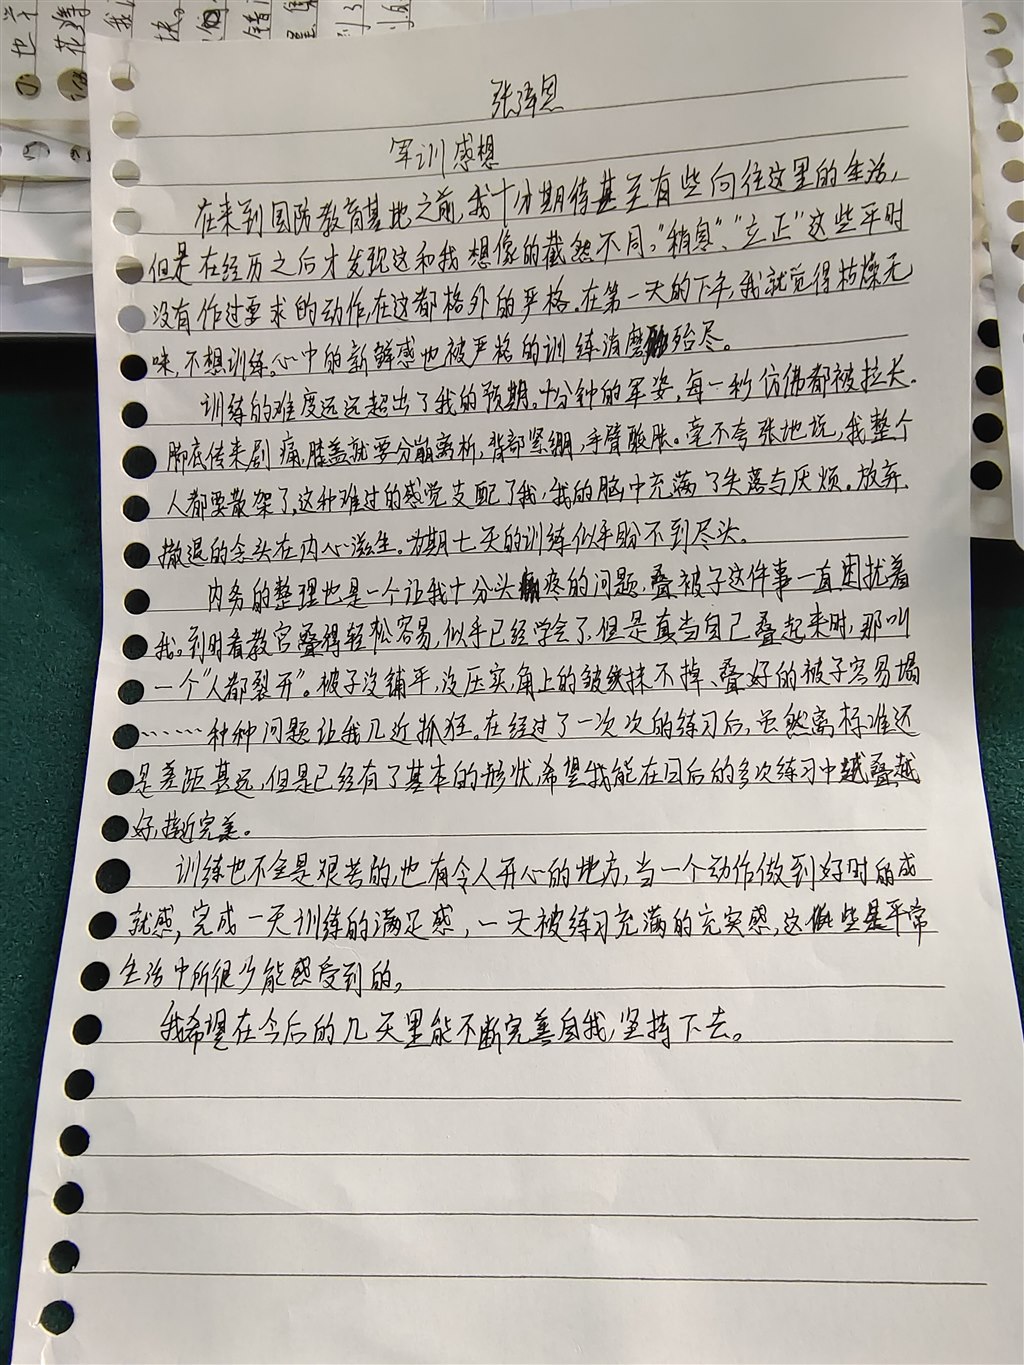 张泽恩
军训感想
在来到国防教育基地之前,我十分期待甚至有些向往这里的生活,
但是在经历之后才发现这和我想像的截然不同。"稍息"、"立正"这些平时
没有作过要求的动作,在这都格外的严格。在第一天的下午,我就觉得枯燥无
味,不想训练。心中的新鲜感也被严格的训练消磨殆尽。
训练的难度远远超出了我的预期。十分钟的军姿,每一秒仿佛都被拉长.
脚底传来剧痛,膝盖就要分崩离析,背部紧绷,手臂酸胀。毫不夸张地说,我整个
人都要散架了,这种难过的感觉支配了我,我的脑中充满了失落与厌烦。放弃、
撤退的念头在内心滋生。为期七天的训练似乎盼不到尽头。
内务的整理也是一个让我十分头疼的问题.叠被子这件事一直困扰着
我。到时看教官叠得轻松容易,似乎已经学会了,但是真当自己叠起来时,那叫
一个"人都裂开"。被子没铺平,没压实,角上的皱纹抹不掉、叠好的被子容易塌
……种种问题让我几近抓狂。在经过了一次次的练习后,虽然离标准还
是差距甚远,但是已经有了基本的形状,希望我能在日后的多次练习中越叠越
好,接近完美。
训练也不全是艰苦的,也有令人开心的地方,当一个动作做到好时的成
就感,完成一天训练的满足感,一天被练习充满的充实感,这些是平常
生活中所很少能感受到的。
我希望在今后的几天里能不断完善自我,坚持下去。